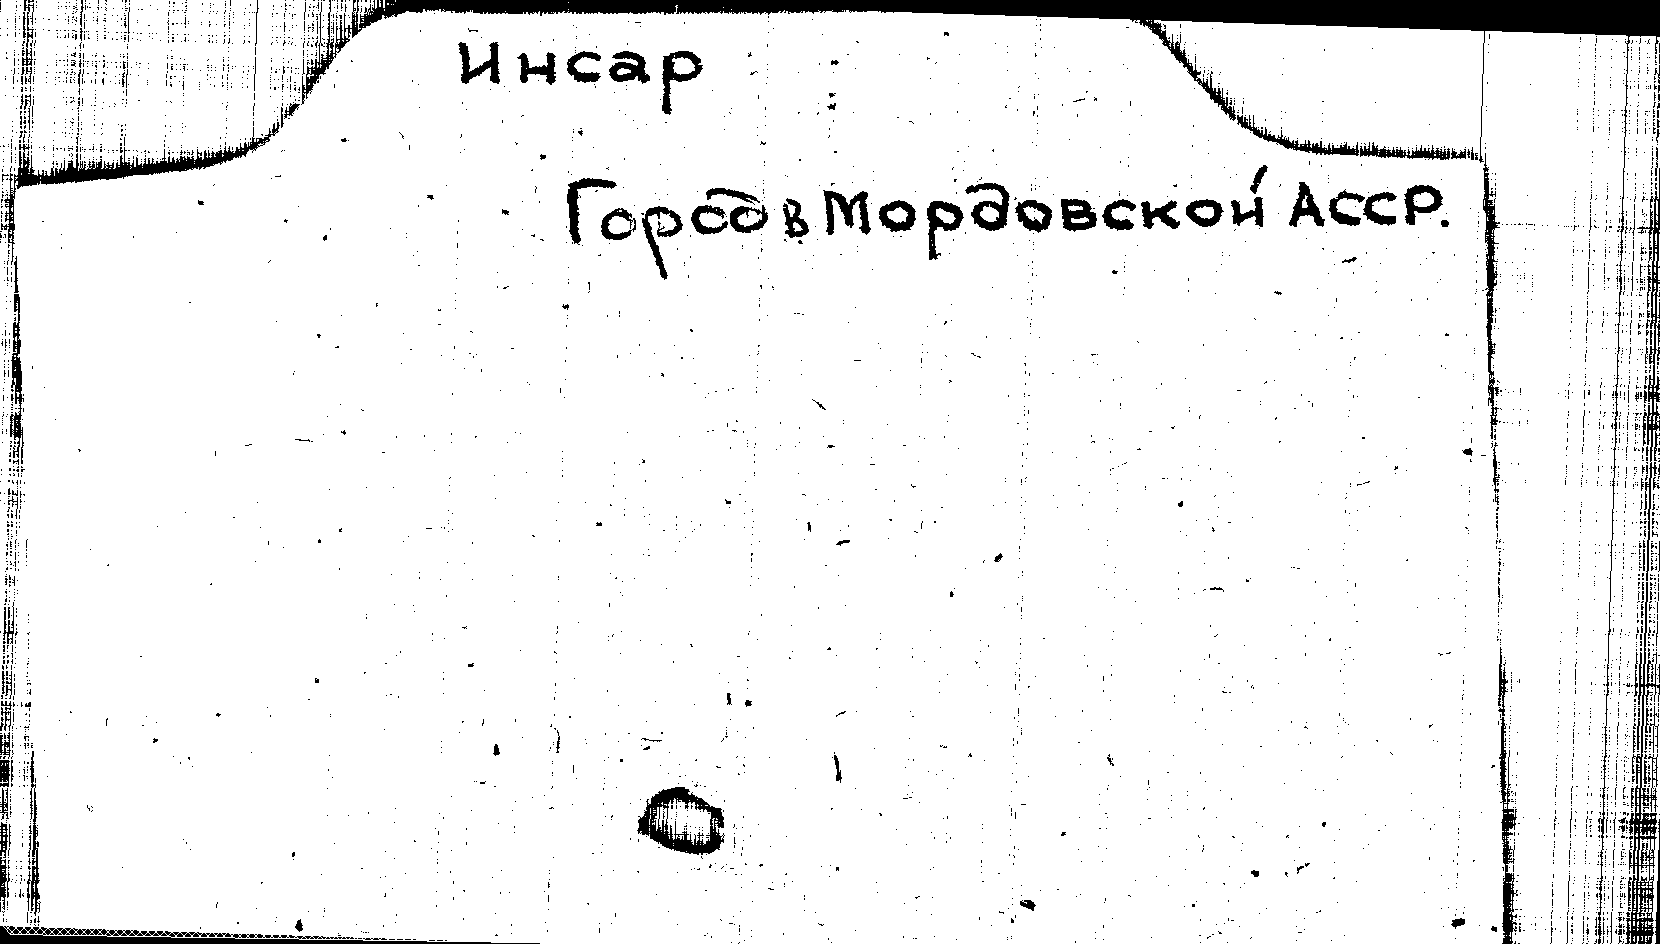 Инсар
Город в Мордовской АССР.